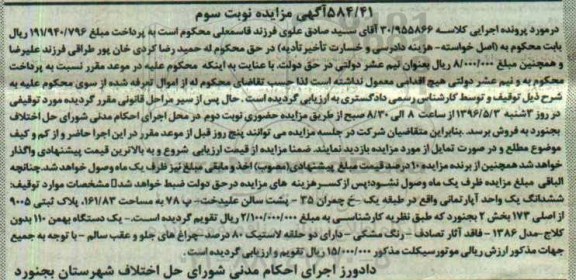 ۵۸۴/۴۱آگهی مزایده نوبت سوم
درمورد پرونده اجرایی کلاسه ۳۰/۹۵۵۸۶۶ آقای سید صادق علوی فرزند قاسمعلی محکوم است به پرداخت مبلغ ۱۹۱/۹۴۰/۷۹۶ ریال
بابت محکوم به (اصل خواسته- هزینه دادرسی و خسارت تأخیر تأدیه) در حق محکوم له حمید رضا کردی خان پور طراقی فرزند علیرضا
و همچنین مبلغ ۸/۰۰۰/۰۰۰ ریال بعنوان نیم عشر دولتی در حق دولت. با عنایت به اینکه محکوم علیه در موعد مقرر نسبت به پرداخت
محکوم به و نیم عشر دولتی هیچ اقدامی معمول نداشته است لذا حسب تقاضای محکوم له از اموال تعرفه شده از سوی محکوم علیه به
شرح ذیل توقیف و توسط کارشناس رسمی دادگستری به ارزیابی گردیده است . حال پس از سیر مراحل قانونی مقرر گردیده مورد توقیفی
در روز ۳شنبه ۱۳۹۶/۵/۳ از ساعت ۸ الی ۸/۳۰ صبح از طریق مزایده حضوری نوبت دوم در محل اجرای احکام مدنی شورای حل اختلاف
بجنورد به فروش برسد. بنابراین متقاضیان شرکت در جلسه مزایده می توانند پنج روز قبل از موعد مقرر در این اجرا حاضر و از کم و کیف
موضوع مطلع و در صورت تمایل از مورد مزایده بازدید نمایند. ضمنا مزایده از قیمت ارزیابی شروع و به بالاترین قیمت پیشنهادی واگذار
خواهد شد همچنین از برنده مزایده ۱۰ درصد قیمت مبلغ پیشنهادی (مصوب) اخذ و مابقی مبلغ نیز ظرف یک ماه وصول خواهد شد.چنانچه
الباقی مبلغ مزایده ظرف یک ماه وصول نشود؛ پس از کسر هزینه های مزایده در حق دولت ضبط خواهد شد مشخصات موارد توقیف:
ششدانگ یک واحد آپارتمانی واقع در طبقه یک -خ چمران ۳۵ - پشت سالن علیدخت- پ ۷۸ به مساحت ۱۶۱/۸۳. پلاک ثبتی ۹۰۰۵
از اصلی ۱۷۳ بخش ۲ بجنورد که طبق نظریه کارشناسی به مبلغ ۲/۱۰۰/۰۰۰/۰۰۰ ریال تقویم گردیده است.- یک دستگاه بهمن ۱۱۰ بدون
کلاج-مدل ۱۳۸۶ - فاقد آثار تصادف - رنگ مشکی - دارای دو حلقه لاستیک ۸۰ درصد-چراغ های جلو و عقب سالم - با توجه به جمیع
جهات مذکور ارزش ریالی موتورسیکلت مذکور ۱۵/۰۰۰/۰۰۰ ریال تقویم و ارزیابی گردیده است.
دادورز اجرای احکام مدنی شورای حل اختلاف شهرستان بجنورد